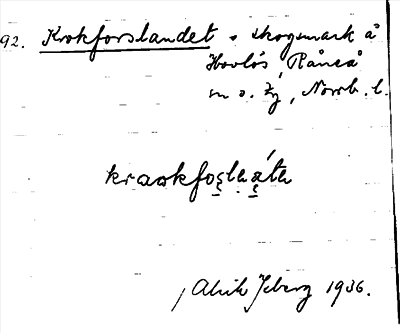 92. Krokforslandet, skogsmark å
Hovlös, Råneå
sn o. tg, Norrb. l.
kraokfoslaátu
Alrik Isberg 1936.